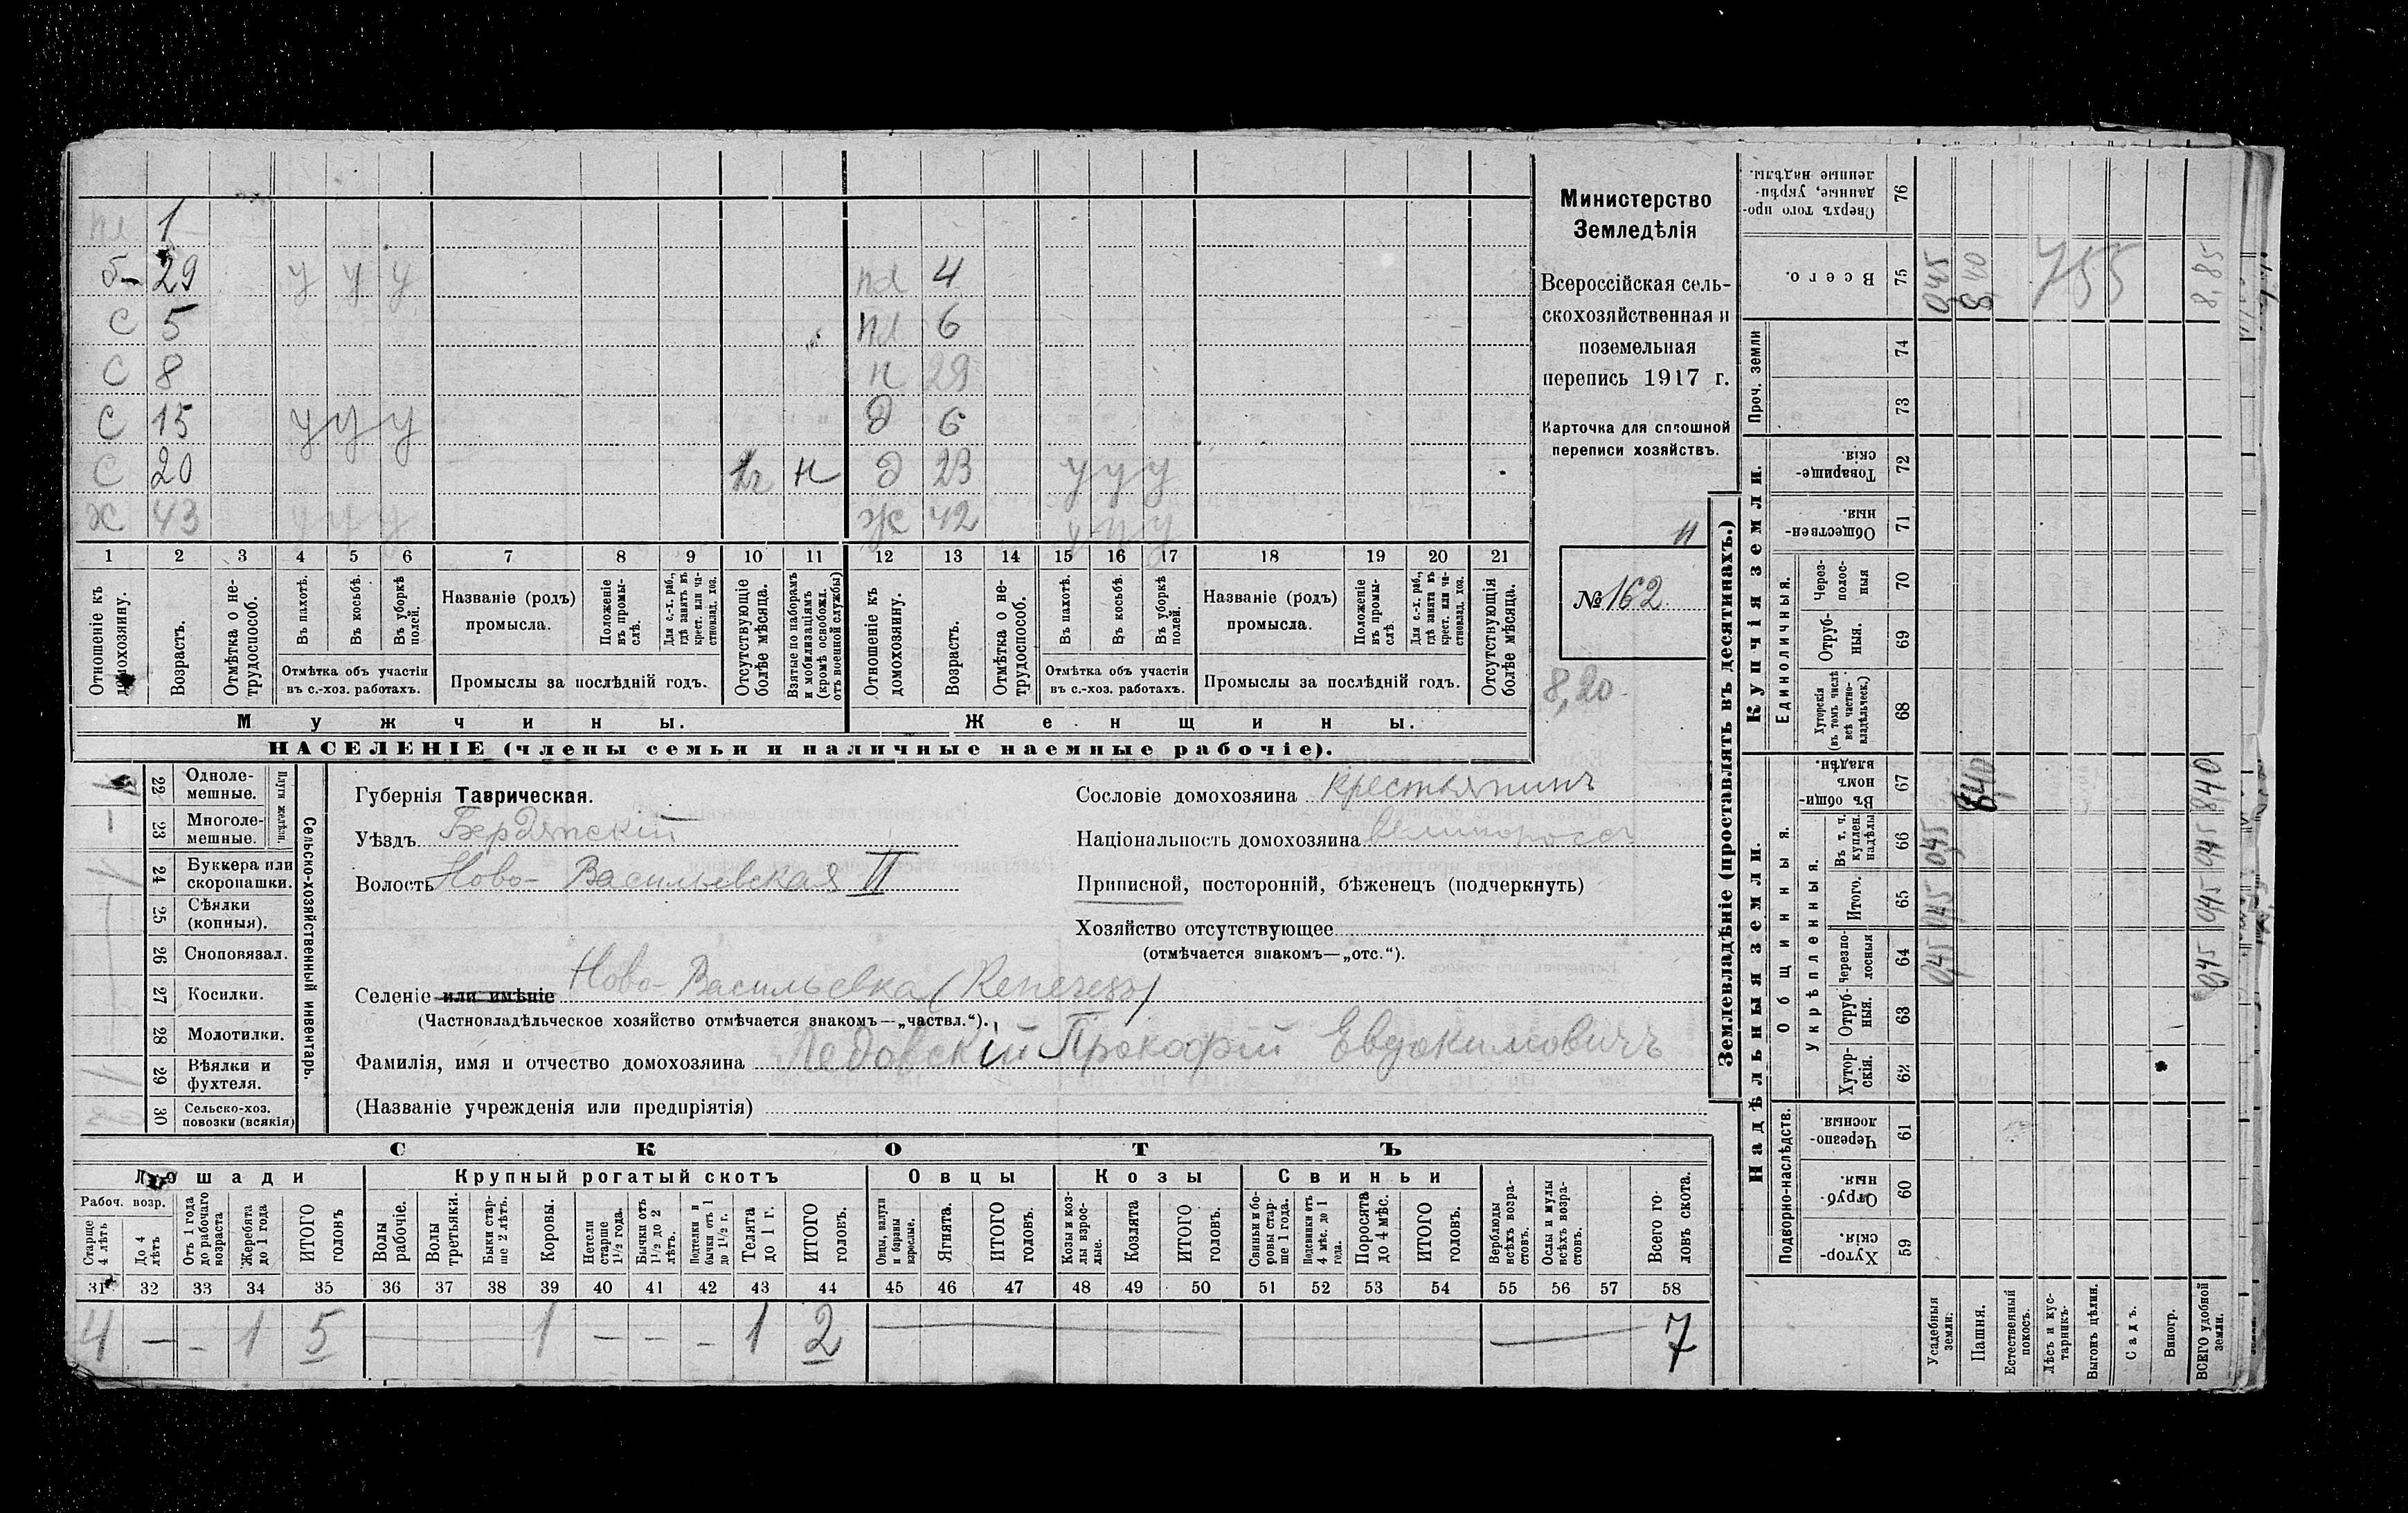 пл 1
б- 29 у у у пл 4
С 5 пл 6
С 8 н 29
С 15 у у у д 6
С 20 н д 23 у у у
Ж 43 у у у Ж 42 у у у
1 2 3 4 5 6 7 8 9 10 11 12 13 14 15 16 17 18 19 20 21
Отношеніе къ домохозяину.
Возрастъ.
Отмѣтка о нетрудоспособ.
Въ пахотѣ.
Въ косьбѣ.
Въ уборкѣ полей.
Отмѣтка объ участіи
въ с.-хоз. работахъ.
Названіе (родъ)
промысла.
Положеніе въ промыслѣ.
Для с.-х. раб., гдѣ занятъ въ крест. или частновлад. хоз.
Промыслы за послѣдній годъ.
Отсутствующіе болѣе мѣсяца.
Взятые по наборамъ и мобилизаціямъ (кромѣ освобожд. отъ военной службы)
Отношеніе къ домохозяину.
Возрастъ.
Отмѣтка о нетрудоспособ.
Въ пахотѣ.
Въ косьбѣ.
Въ уборкѣ полей.
Отмѣтка объ участіи
въ с.-хоз. работахъ.
Названіе (родъ)
промысла.
Положеніе въ промыслѣ
Для с.-х. раб., гдѣ занята въ крест. или частновлад. хоз.
Промыслы за послѣдній годъ.
Отсутствующія болѣе мѣсяца.
Мужчины. Женщины.
НАСЕЛЕНІЕ (члены семьи и наличные наемные рабочіе).
Министерство
Земледѣлія
Всероссійская сель-
скохозяйственная и
поземельная
перепись 1917 г.
Карточка для сплошной
переписи хозяйствъ.
№ 162
8,20
22 Одноле-
мешные.
23 Многоле-
мешные.
Плуги желѣзн.
24 Буккера или
скоропашки.
25 Сѣялки
(конныя).
26 Сноповязал.
27 Косилки.
28 Молотилки.
29 Вѣялки и
фухтеля.
30 Сельско-хоз.
повозки (всякія)
Сельско-хозяйственный инвентарь.
Губернія Таврическая.
Уѣздъ Бердянскій
Волость Ново-Васильевская II
Сословіе домохозяина крестьянинъ
Національность домохозяина великороссъ
Приписной, посторонній, бѣженецъ (подчеркнуть)
Хозяйство отсутствующее
(отмѣчается знакомъ—„отс.“).
Селеніе или имѣніе Ново-Васильевка (Кенегезъ)
(Частновладѣльческое хозяйство отмѣчается знакомъ—„частвл.“).
Фамилія, имя и отчество домохозяина Ледовскій Прокофій Евдокимовичъ
(Названіе учрежденія или предпріятія)
СКОТЪ
Лошади Крупный рогатый скотъ Овцы Козы Свиньи
Рабоч. возр.
Старше 4 лѣтъ
До 4 лѣтъ
Отъ 1 года до рабочаго возраста
Жеребята до 1 года
ИТОГО головъ
Волы рабочіе.
Волы третьяки.
Быки старше 2 лѣтъ.
Коровы.
Нетели старше 1½ года.
Бычки отъ 1½ до 2 лѣтъ.
Подтелки и бычки отъ 1 до 1½ г.
Телята до 1 г.
ИТОГО головъ.
Овцы, валухи и бараны взрослые.
Ягнята.
ИТОГО головъ.
Козы и козлы взрослые.
Козлята
ИТОГО головъ.
Свиньи и боровы старше 1 года.
Подсвинки отъ 4 мѣс. до 1 года.
Поросята до 4 мѣс.
ИТОГО головъ.
Верблюды всѣхъ возрастовъ.
Ослы и мулы всѣхъ возрастовъ.
Всего головъ скота.
31 32 33 34 35 36 37 38 39 40 41 42 43 44 45 46 47 48 49 50 51 52 53 54 55 56 57 58
4 — - 1 5 — 1 — — — 1 2 — — 7
Землевладѣніе (проставлять въ десятинахъ.)
Надѣльныя земли. Купчія земли.
Подворно-наслѣдств.
Общинныя.
Укрѣпленныя.
Единоличныя.
Проч. земли
Сверхъ того проданные, укрѣпленные надѣлы. 76
Всего. 75
74
73
Товарищескія. 72
Общественныя. 71
Черезполосныя 70
Отрубныя. 69
Хуторскія (въ томъ числѣ всѣ частновладѣльческ.) 68
Въ общиномъ владѣн. 67
Въ т. ч. куплен. надѣлы 66
Итого. 65
Черезполосныя 64
Отрубныя. 63
Хуторскія. 62
Черезполосныя 61
Отрубныя. 60
Хуторскія. 59
Усадебныя земли. 0,45 0,45 0,45 0,45
Пашня. 8,40 8,40
Естественный покосъ.
Лѣсъ и кустарникъ.
Выгонъ цѣлин.
Садъ.
Виногр.
ВСЕГО удобной земли. 0,45 0,45 0,45 8,40 8,85
755